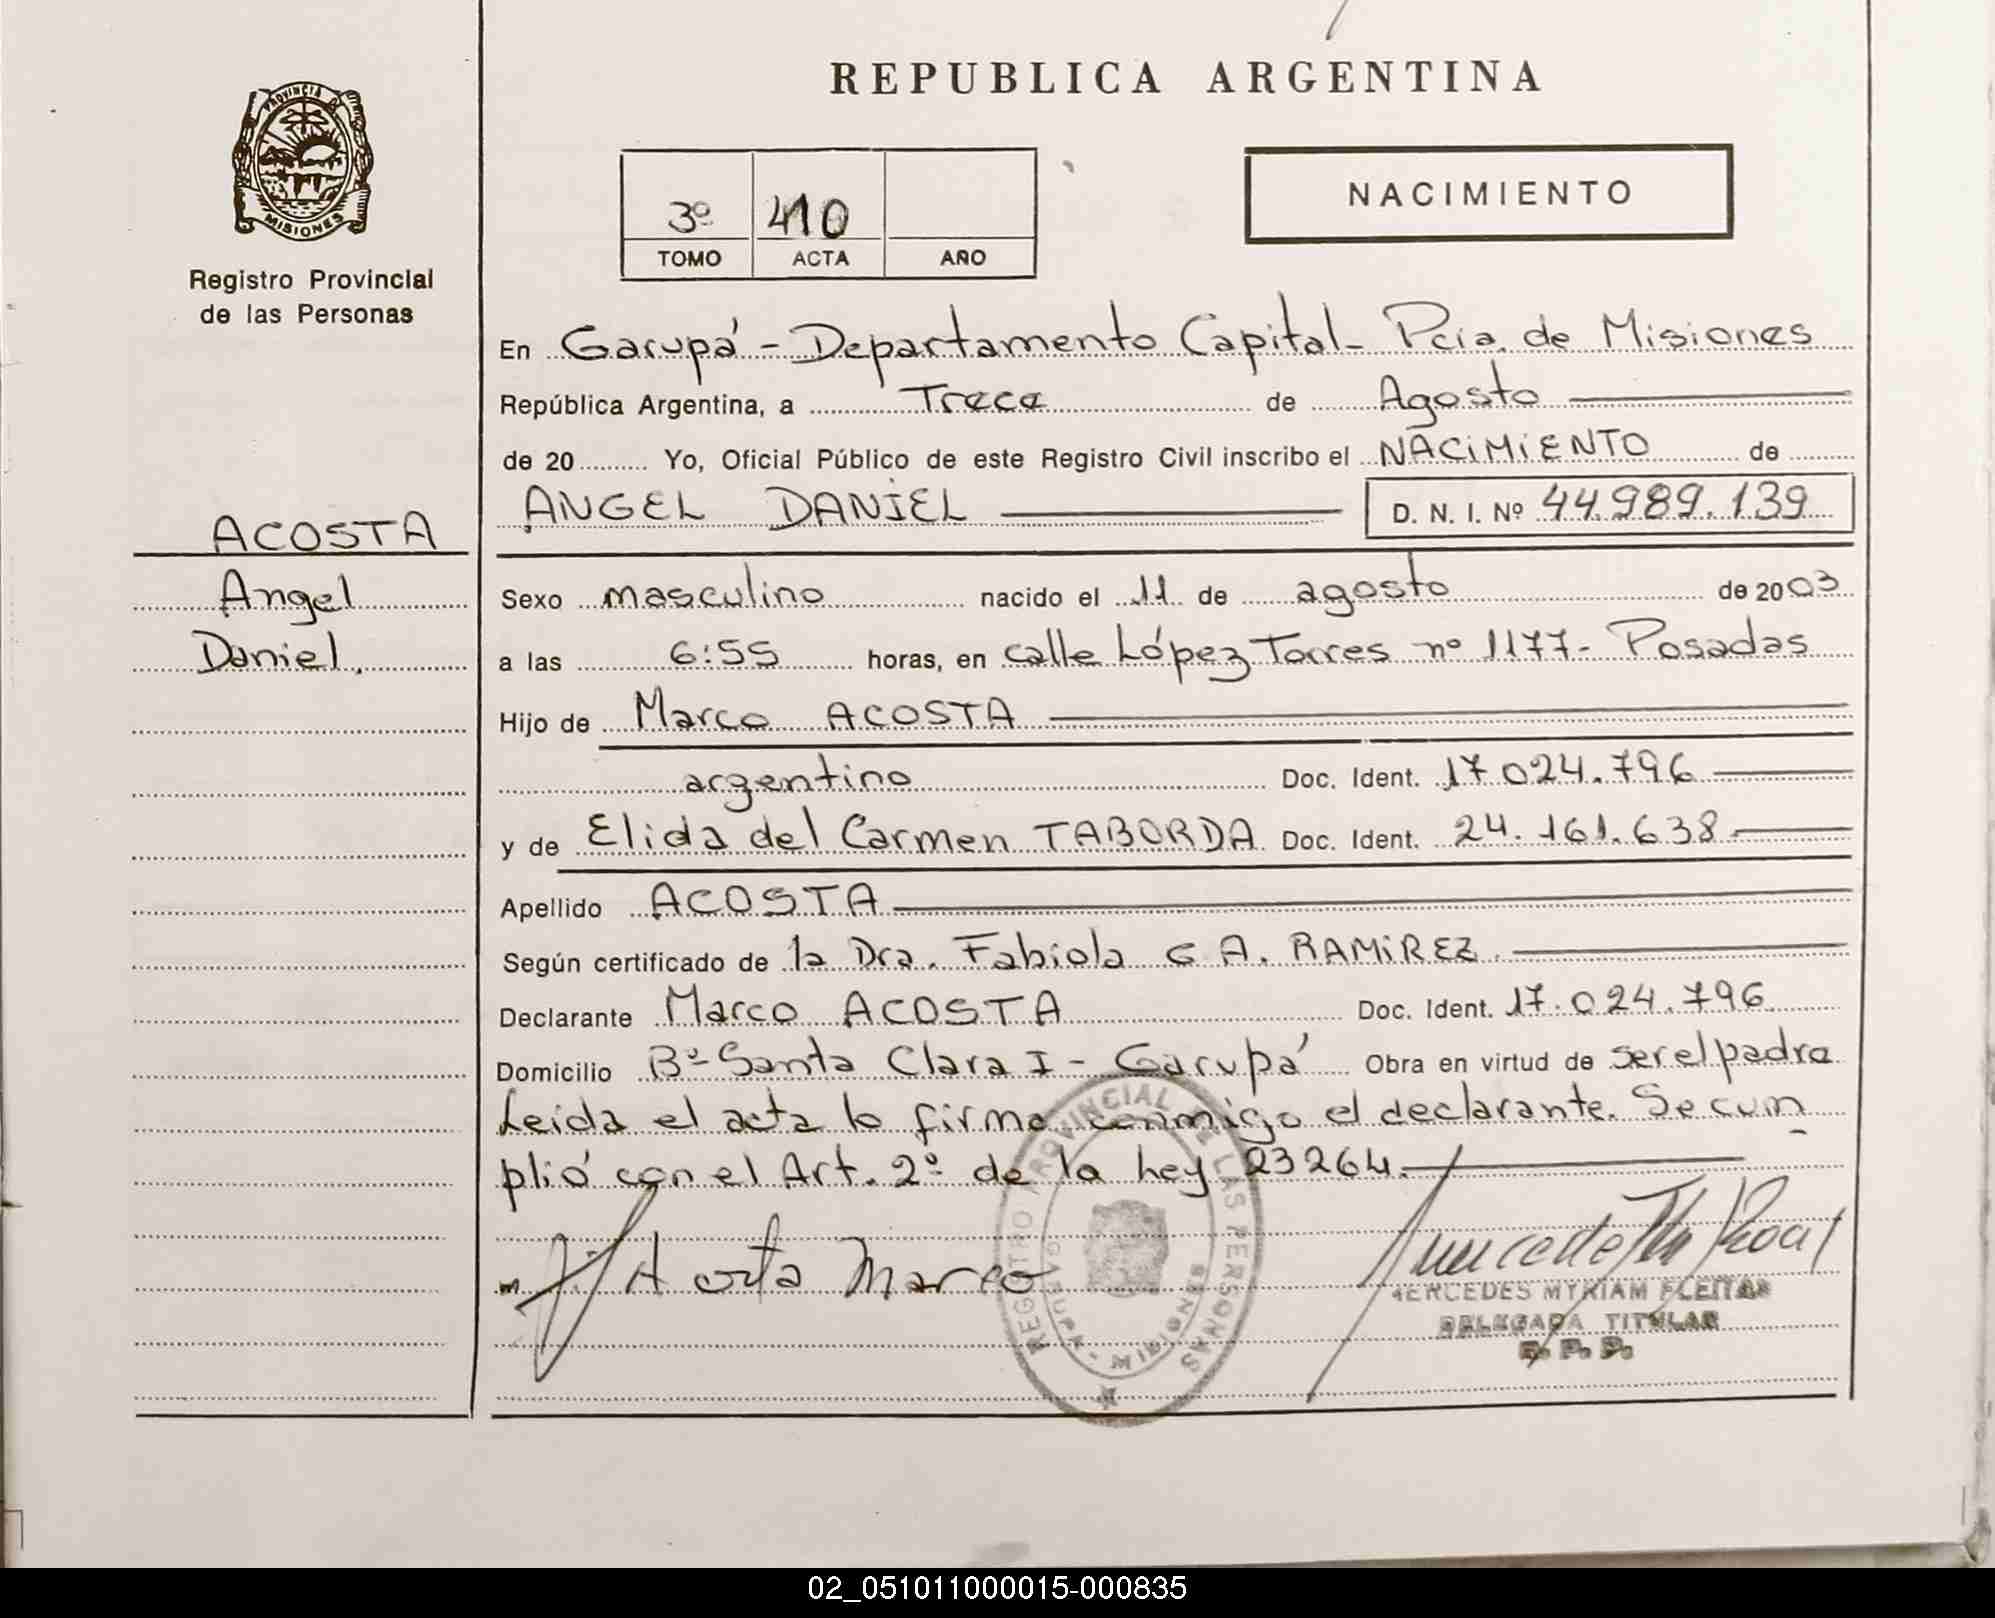 REPUBLICA ARGENTINA
PROVINCIA DE
MISIONES
Registro Provincial
de las Personas
3º 410
TOMO ACTA AÑO
NACIMIENTO
En Garupá - Departamento Capital - Pcia. de Misiones
República Argentina, a Trece de Agosto
de 20 Yo, Oficial Público de este Registro Civil inscribo el NACIMIENTO de
ANGEL DANIEL D. N. I. Nº 44.989.139
ACOSTA
Angel
Daniel.
Sexo masculino nacido el 11 de agosto de 2003
a las 6:55 horas, en calle López Torres nº 1177- Posadas
Hijo de Marco ACOSTA
argentino Doc. Ident. 17.024.796
y de Elida del Carmen TABORDA Doc. Ident. 24.161.638
Apellido ACOSTA
Según certificado de la Dra. Fabiola G A. RAMIREZ
Declarante Marco ACOSTA Doc. Ident. 17.024.796
Domicilio Bº Santa Clara I - Garupá Obra en virtud de ser el padre
Leida el acta lo firma conmigo el declarante. Se cum
plió con el Art. 2º de la Ley 23264.
Acosta Marco
REGISTRO PROVINCIAL DE LAS PERSONAS
GARUPA - MISIONES
MERCEDES MYRIAM FLEITAS
DELEGADA TITULAR
R. P. P.
02_051011000015-000835